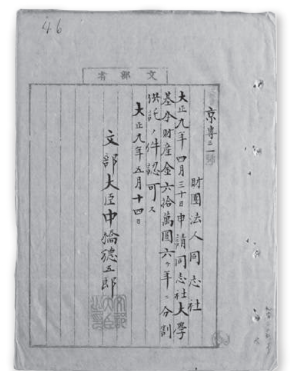 46
文部省
京専二號
財團法人同志社
大正九年四月三十日申請同志社大學
基本財産金六拾萬圓六ヶ年ニ分割
供託ノ件認可ス
大正九年五月十四日
文部大臣中橋德五郎